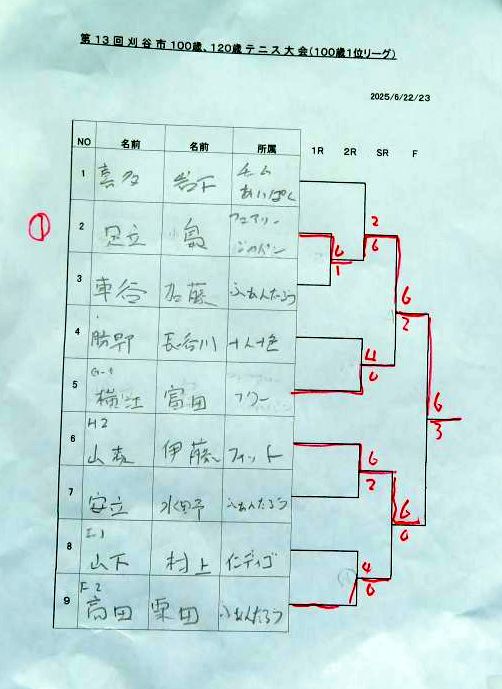 第13回刈谷市100歳、120歳テニス大会(100歳1位リーグ)
2025/6/22/23
NO 名前 名前 所属 1R 2R SR F
1 喜多 岩下 チーム あいぱく
① 2 足立 島 フェアリー ジャパン
2
6
6
1
3 車谷 加藤 ふぁんたるつ
6
2
4 勝野 長谷川 十人十色
4
6
5 G-1 横江 富田 フリー
6
3
6 H2 山森 伊藤 フィット
6
2
7 安立 水野 ふぁんたるつ
6
0
8 I-1 山下 村上 インディゴ
4
6
9 F2 高田 栗田 ふぁんたるつ